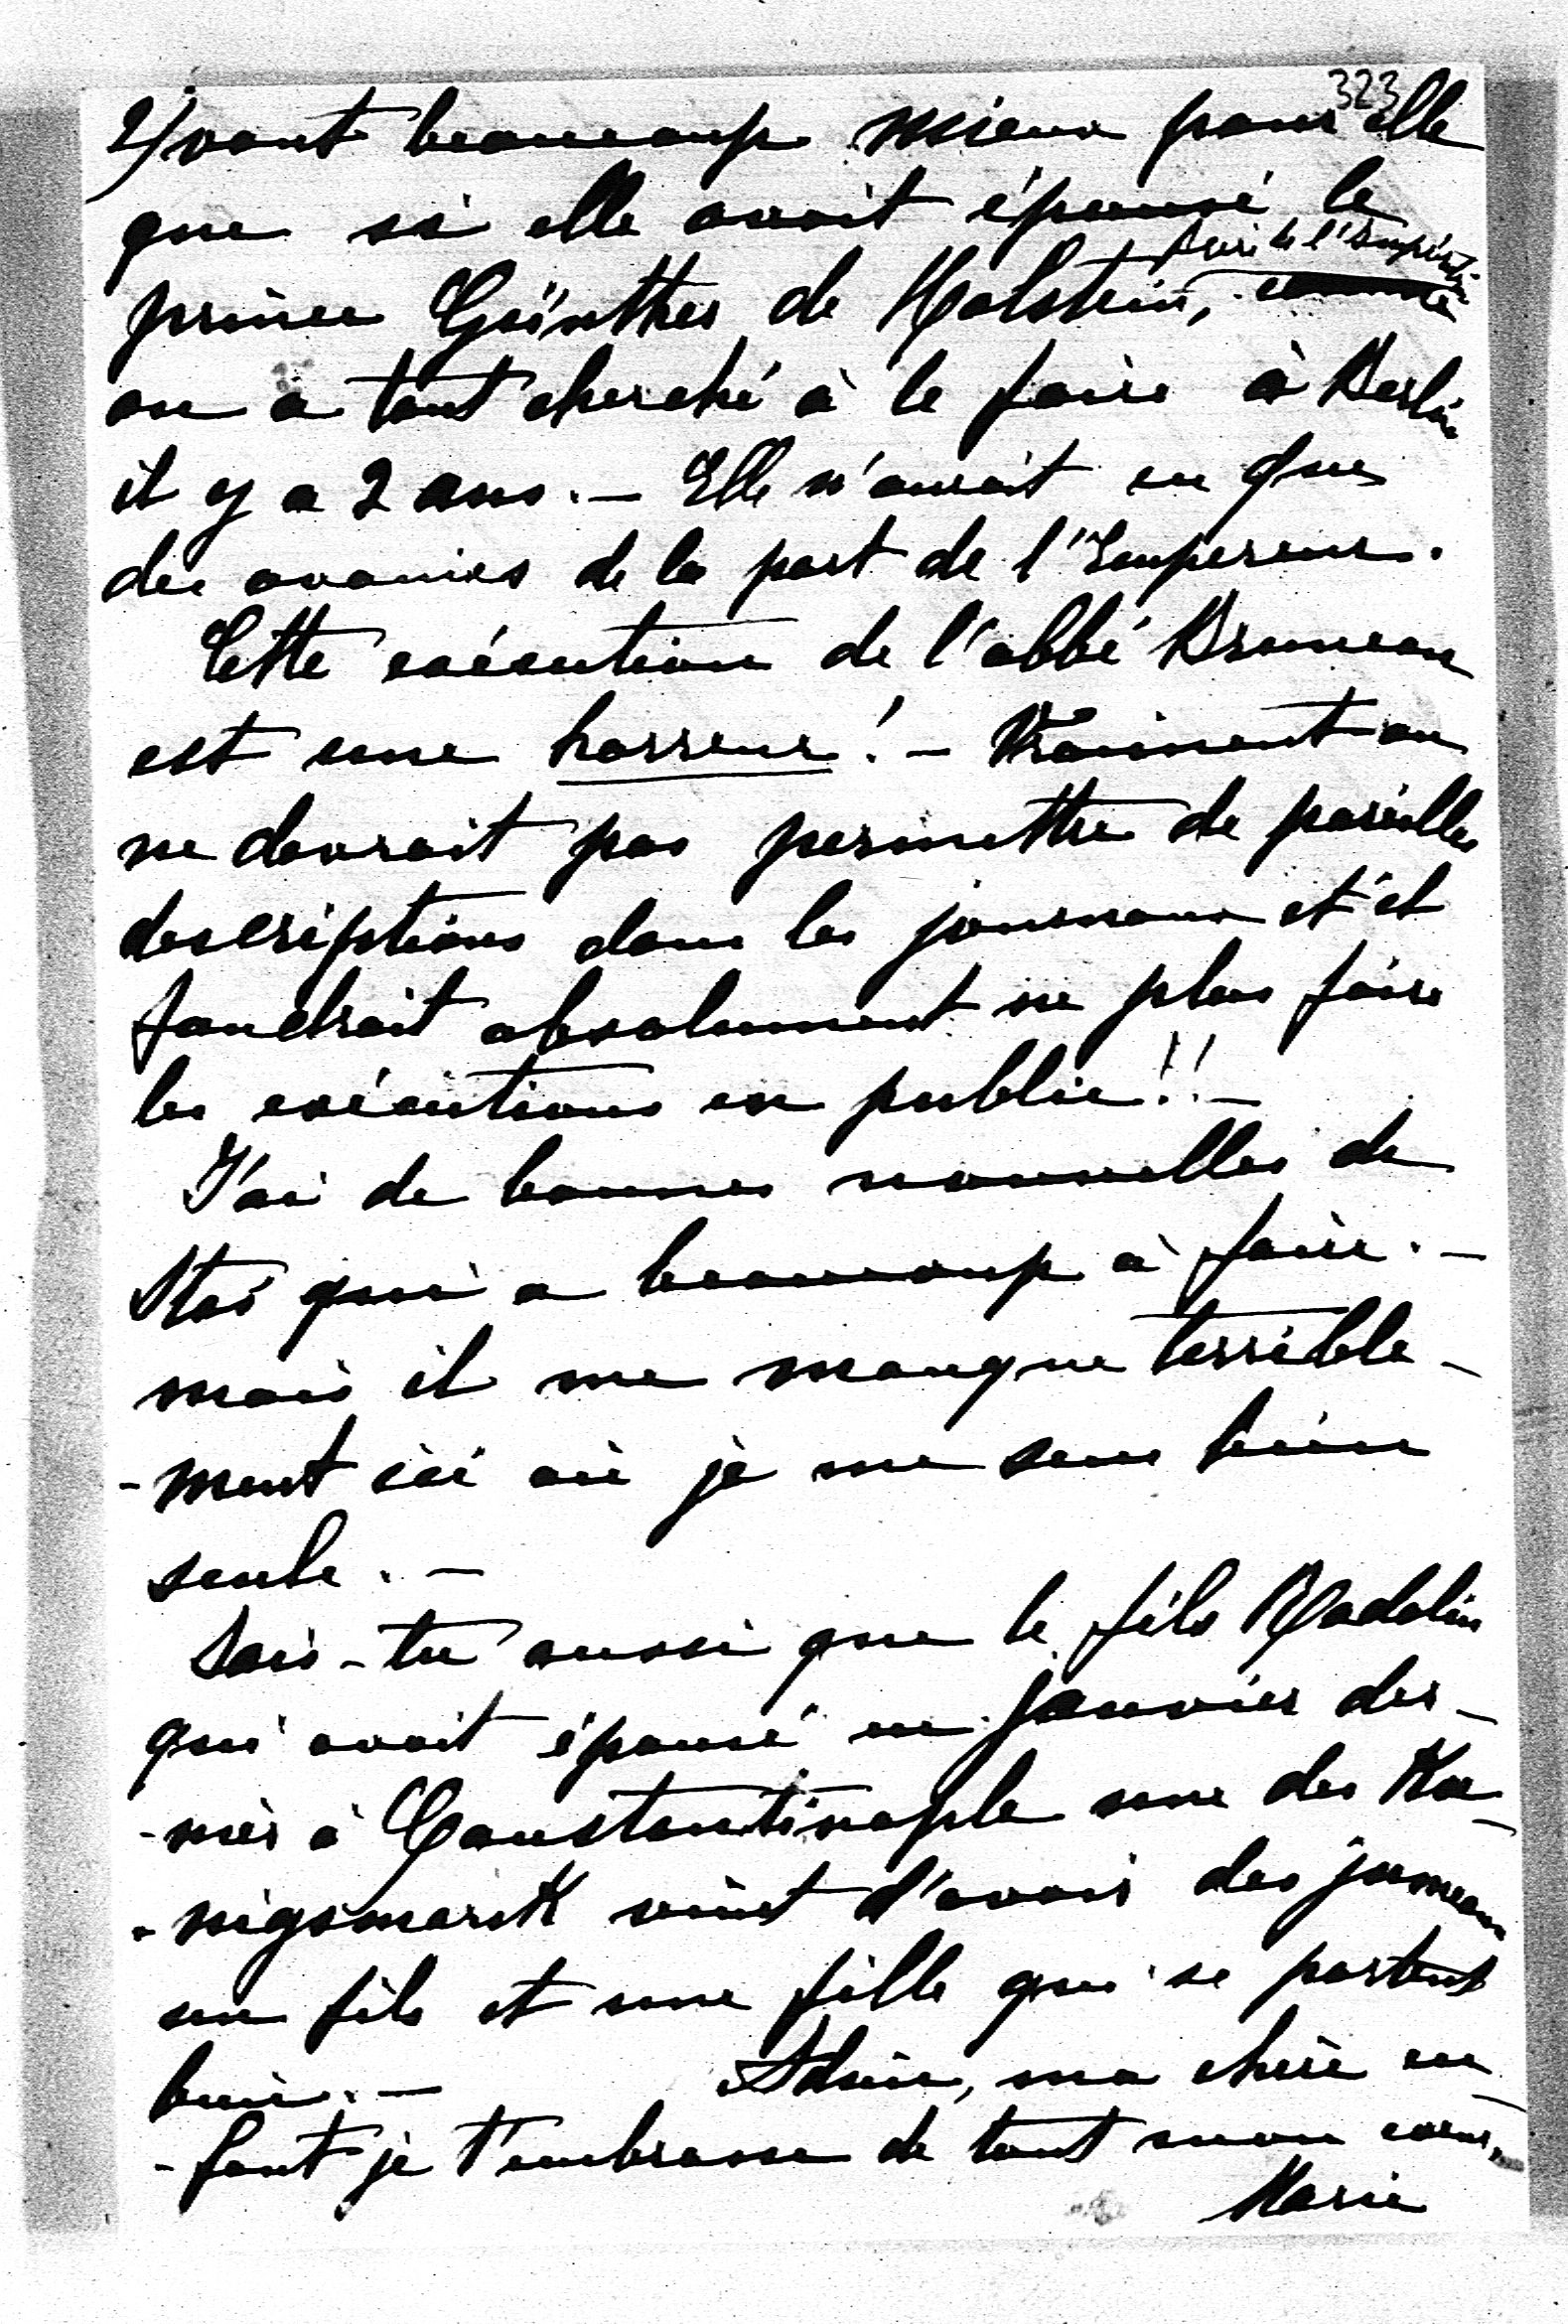 323
2/ vaut beaucoup mieux pour elle
que si elle avait épousé le
frère de l'Impératrice
prince Günther de Holstein, comme
on a tant cherché à le faire à Berlin
il y a 2 ans. — Elle n'aurait eu que
des avanies de la part de l'Empereur.
Cette exécution de l'abbé Bruneau
est une horreur ! — Vraiment on
ne devrait pas permettre de pareilles
descriptions dans les journaux et il
faudrait absolument ne plus faire
les exécutions en public !! —
J'ai de bonnes nouvelles de
qui a beaucoup à faire. —
mais il me manque terrible-
-ment ici où je me sens bien
seule. —
Sais-tu aussi que le fils Radolin
qui avait épousé en janvier der-
-nier à Constantinople une des Koe-
-nigsmarck vient d'avoir des jumeaux
un fils et une fille qui se portent
bien. — Adieu, ma chère en-
-fant je t'embrasse de tout mon coeur.
Marie